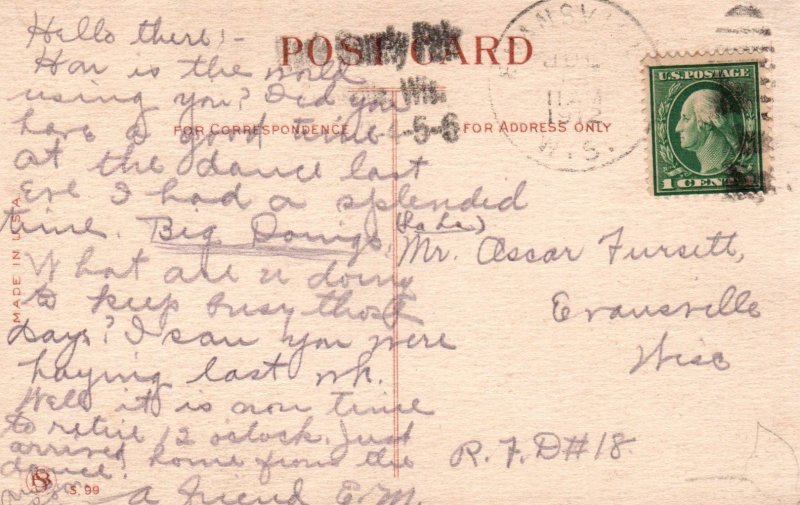 POST CARD
FOR CORRESPONDENCE
FOR ADDRESS ONLY
MADE IN U.S.A.
Hello there!-
How is the world
using you? Did you
have a good time
at the dance last
Eve I had a splendid
time. Big Doings. (La La)
What are u doing
to keep busy those
days? I saw you were
haying last wk.
Well it is now time
to retire 12 o'clock. Just
arrived home from the
dance!
A friend E.M.
S. 99
-5-6
Wis.
U.S. POSTAGE
1 CENT
Mr. Oscar Fursett,
Evansville
Wisc
R.F.D# 18.